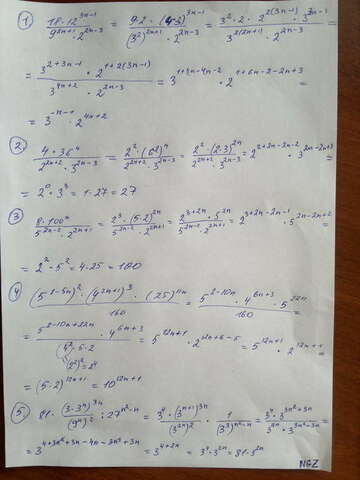 1) 18·12^(3n-1) / 9^(2n+1)·2^(2n-3) = 9·2·(4·3)^(3n-1) / (3²)^(2n+1)·2^(2n-3) = 3²·2·2^(2(3n-1))·3^(3n-1) / 3^(2(2n+1))·2^(2n-3) =
= 3^(2+3n-1) / 3^(4n+2) · 2^(1+2(3n-1)) / 2^(2n-3) = 3^(1+3n-4n-2) · 2^(1+6n-2-2n+3) =
= 3^(-n-1) · 2^(4n+2)
2. 4·36^n / 2^(2n+2)·3^(2n-3) = 2²·(6²)^n / 2^(2n+2)·3^(2n-3) = 2²·(2·3)^(2n) / 2^(2n+2)·3^(2n-3) = 2^(2+2n-2n-2) · 3^(2n-2n+3) =
= 2⁰·3³ = 1·27 = 27
3 8·100^n / 5^(2n-2)·2^(2n+1) = 2³·(5·2)^(2n) / 5^(2n-2)·2^(2n+1) = 2^(3+2n)·5^(2n) / 5^(2n-2)·2^(2n+1) = 2^(3+2n-2n-1) · 5^(2n-2n+2) =
= 2²·5² = 4·25 = 100
4 (5^(1-5n))²·(4^(2n+1))³·(25)^(11n) / 160 = 5^(2-10n)·4^(6n+3)·5^(22n) / 160 =
= 5^(2-10n+22n)·4^(6n+3) / 4²·5·2 = 5^(12n+1) · 2^(12n+6-5) = 5^(12n+1) · 2^(12n+1) =
(2²)² = 2⁴
= (5·2)^(12n+1) = 10^(12n+1)
5. 81·(3·3^n)^(3n) / (9^n)² : 27^(n²-n) = 3⁴·(3^(n+1))^(3n) / (3^(2n))² · 1 / (3³)^(n²-n) = 3⁴·3^(3n²+3n) / 3^(4n)·3^(3n²-3n) =
= 3^(4+3n²+3n-4n-3n²+3n) = 3^(4+2n) = 3⁴·3^(2n) = 81·3^(2n)
NGZ